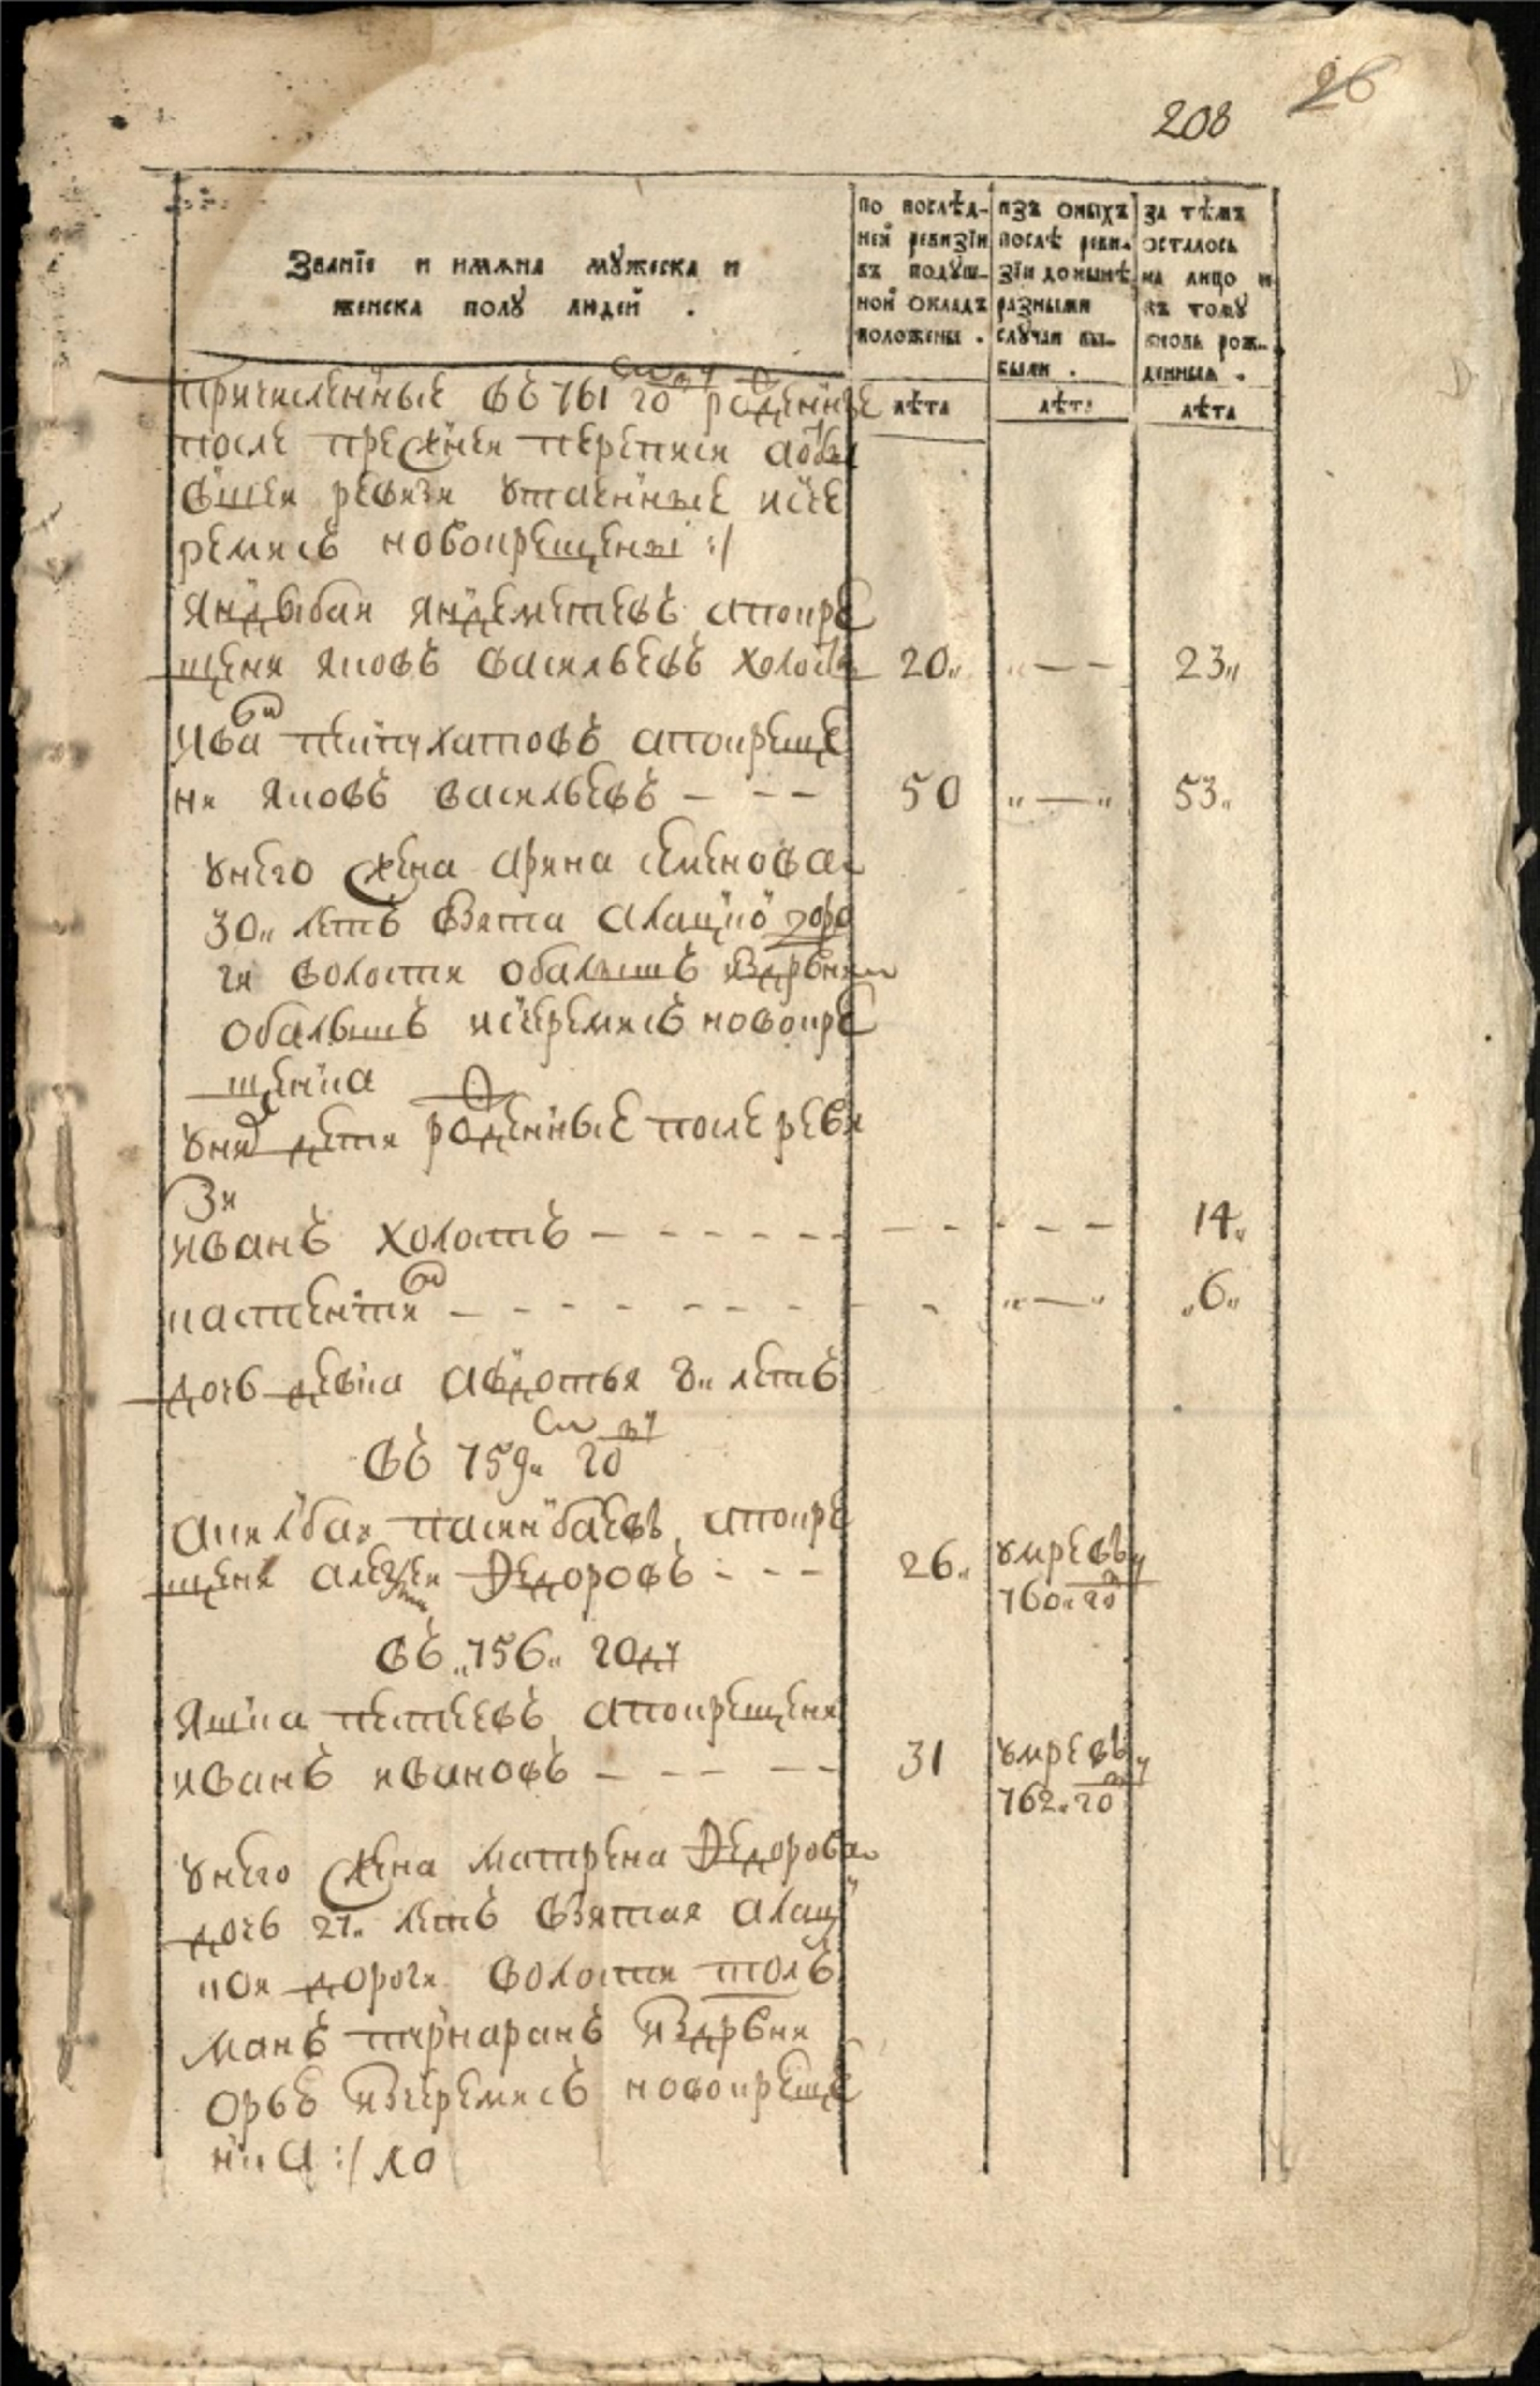 208 26
Званїе и имѧна мꙋжеска и
женска полꙋ людей .
по послѣд-
ней ревизїи
въ подꙋш-
ной окладъ
положены .
изъ оныхъ
послѣ реви-
зїи донынѣ
разными
слꙋчаи вы-
были .
за тѣмъ
осталось
на лицо и
къ томꙋ
вновь рож-
денныя .
лѣта лѣта лѣта
причисленные въ 761 году рожденные
после прежнеи переписи а
вшеи ревизи утаенные исче
ремисъ новокрещены :/
яндыбаи яндеметевъ апокре
щени яковъ васильевъ холостъ 20 " — — 23
ива пеипухатовъ апокреще
ни яковъ васильевъ — — — 50 " — " 53
унего жена арина семенова
30 летъ взята алацкой доро
ги волости обалышъ издрвни
обалышъ исчеремисъ новокре
щенка
уних дети рожденные после реви
зи
иванъ холостъ — — — — — — — — — — 14
костентин — — — — — — — — — " — " 6
дочь девка авдотья 8 летъ
въ 759 году
акилбаи пасинбаевъ апокре
щени алексеи федоровъ — — — 26 умре въ
760 году
въ 756 году
яшка петаевъ апокрещени
иванъ ивановъ — — — — — 31 умре въ
762 году
унего жена матрена федорова
дочь 27 летъ взятая алац
кои дороги волости толь
манъ пирнаранъ издрвни
орьъ изчеремисъ новокреще
нка :/ ло